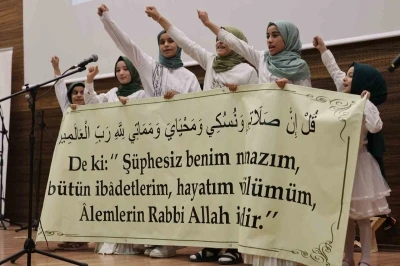 قُلْ إِنَّ صَلَاتِي وَنُسُكِي وَمَحْيَايَ وَمَمَاتِي لِلَّهِ رَبِّ الْعَالَمِينَ
De ki:" Şüphesiz benim namazım,
bütün ibâdetlerim, hayatım ölümüm,
Âlemlerin Rabbi Allah içindir."